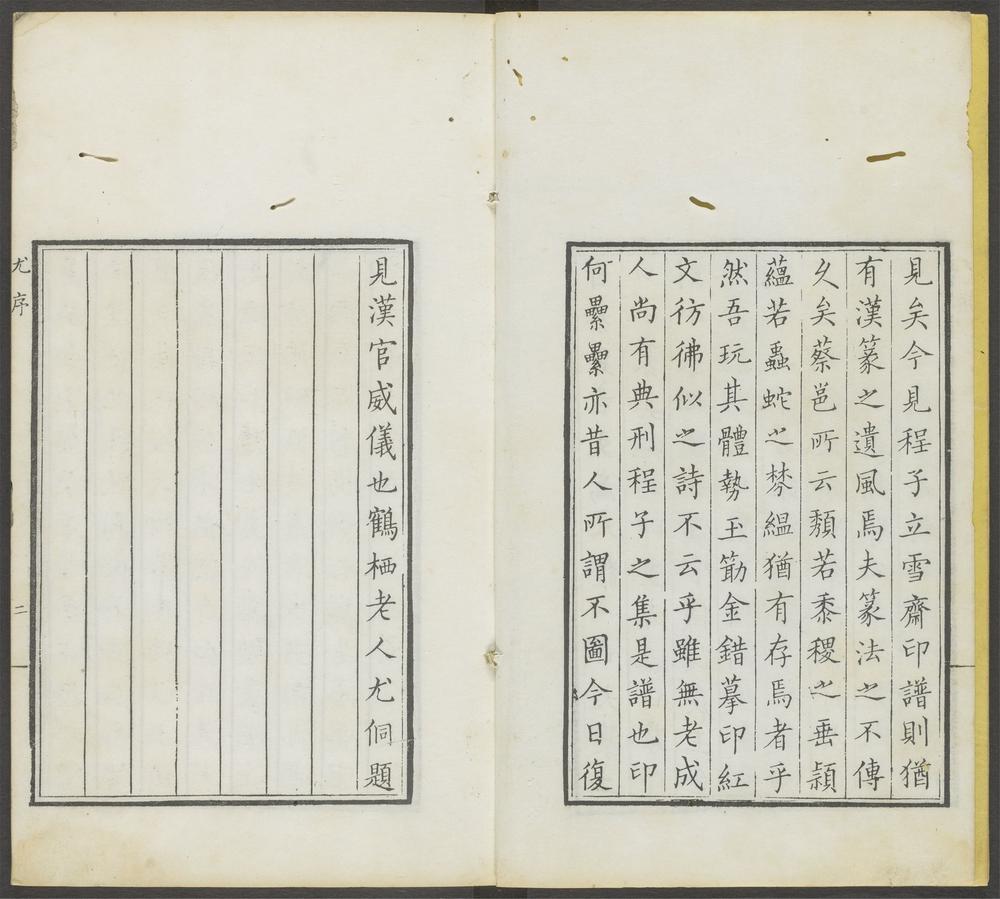 見矣今見程子立雪齋印譜則猶
有漢篆之遺風焉夫篆法之不傳
久矣蔡邕所云頹若黍稷之垂穎
蘊若蟲蛇之棼縕猶有存焉者乎
然吾玩其體勢玉筯金錯摹印紅
文彷彿似之詩不云乎雖無老成
人尚有典刑程子之集是譜也印
何纍纍亦昔人所謂不圖今日復
見漢官威儀也鶴栖老人尤侗題
尤序
二